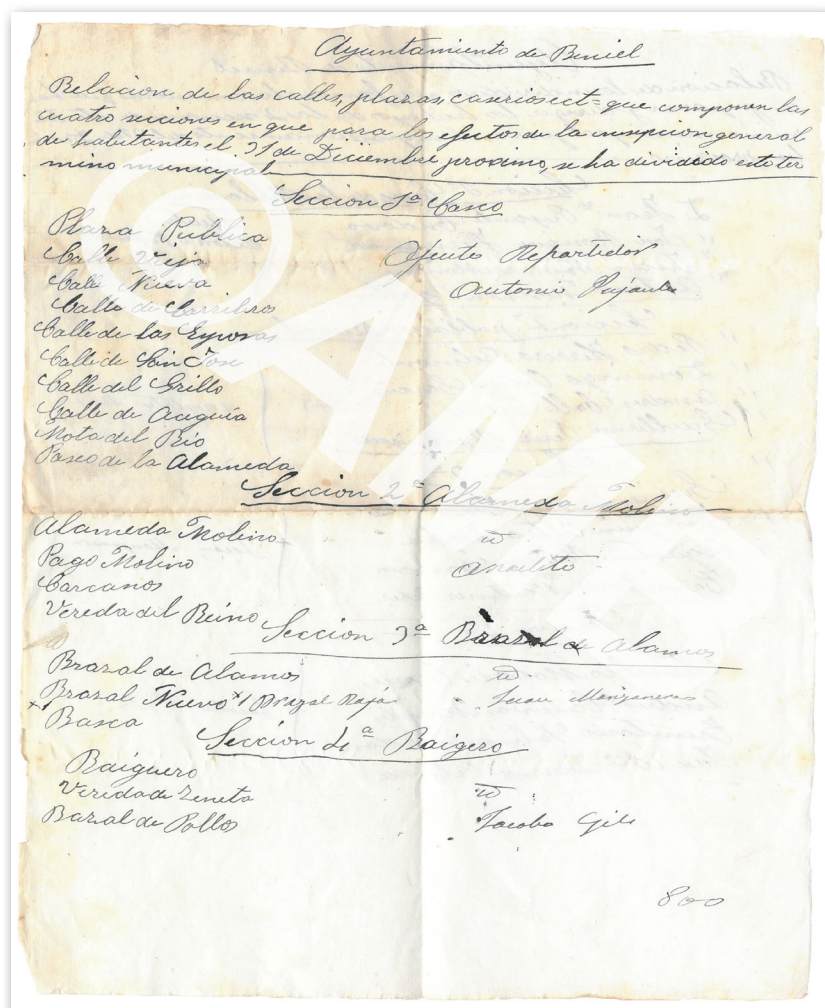 Ayuntamiento de Beniel
Relacion de las calles, plazas, caserios ect= que componen las
cuatro secciones en que para los efectos de la inscripcion general
de habitantes el 31 de Diciembre proximo, se ha dividido este ter
mino municipal
Seccion 1ª Casco
Plaza Publica
Calle Vieja Agente Repartidor
Calle Nueva Antonio Pujante
Calle de Carriles
Calle de las Esposas
Calle de San Jose
Calle del Grillo
Calle de Acequia
Mota del Rio
Paseo de la Alameda
Seccion 2ª Alameda Molino
Alameda Molino id
Pago Molino Anacleto
Carcanos
Vereda del Reino
Seccion 3ª Brazal de Alamos
Brazal de Alamos id
Brazal Nuevo x/ Brazal Raja Juan Manzanera
x Basca
Seccion 4ª Baigero
Raiguero
Vereda de Zeneta id
Bazal de Pollos Jacobo Gil
800
© AMB